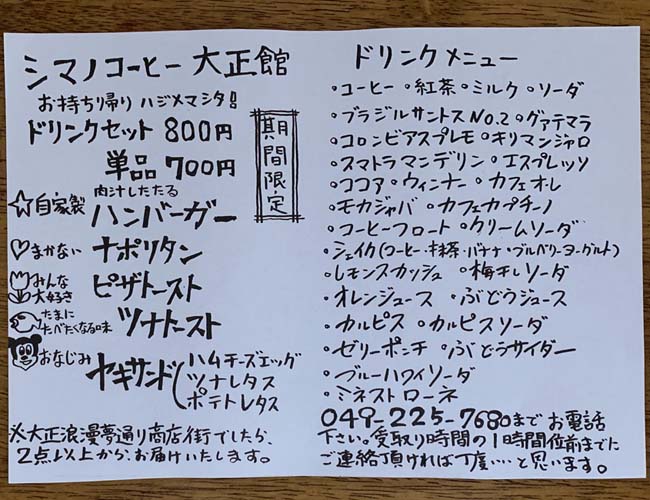 シマノコーヒー 大正館
お持ち帰り ハジメマシタ!!
ドリンクセット 800円
単品 700円
期間限定
自家製 肉汁したたる
ハンバーガー
まかない ナポリタン
みんな大好き ピザトースト
たまにたべたくなる味 ツナトースト
おなじみ ヤキサンド
ハムチーズエッグ
ツナレタス
ポテトレタス
※大正浪漫夢通り商店街でしたら、
2点以上から、お届けいたします。
ドリンクメニュー
・コーヒー ・紅茶 ・ミルク ・ソーダ
・ブラジルサントスNo.2 ・グァテマラ
・コロンビアスプレモ ・キリマンジャロ
・スマトラマンデリン ・エスプレッソ
・ココア ・ウィンナー ・カフェオレ
・モカジャバ ・カフェカプチーノ
・コーヒーフロート ・クリームソーダ
・シェイク(コーヒー・抹茶・バナナ・ブルベリーヨーグルト)
・レモンスカッシュ ・梅干しソーダ
・オレンジュース ・ぶどうジュース
・カルピス ・カルピスソーダ
・ゼリーポンチ ・ぶどうサイダー
・ブルーハワイソーダ
・ミネストローネ
049-225-7680まで お電話
下さい。受取り時間の1時間位前までに
ご連絡頂ければ丁度い…と思います。